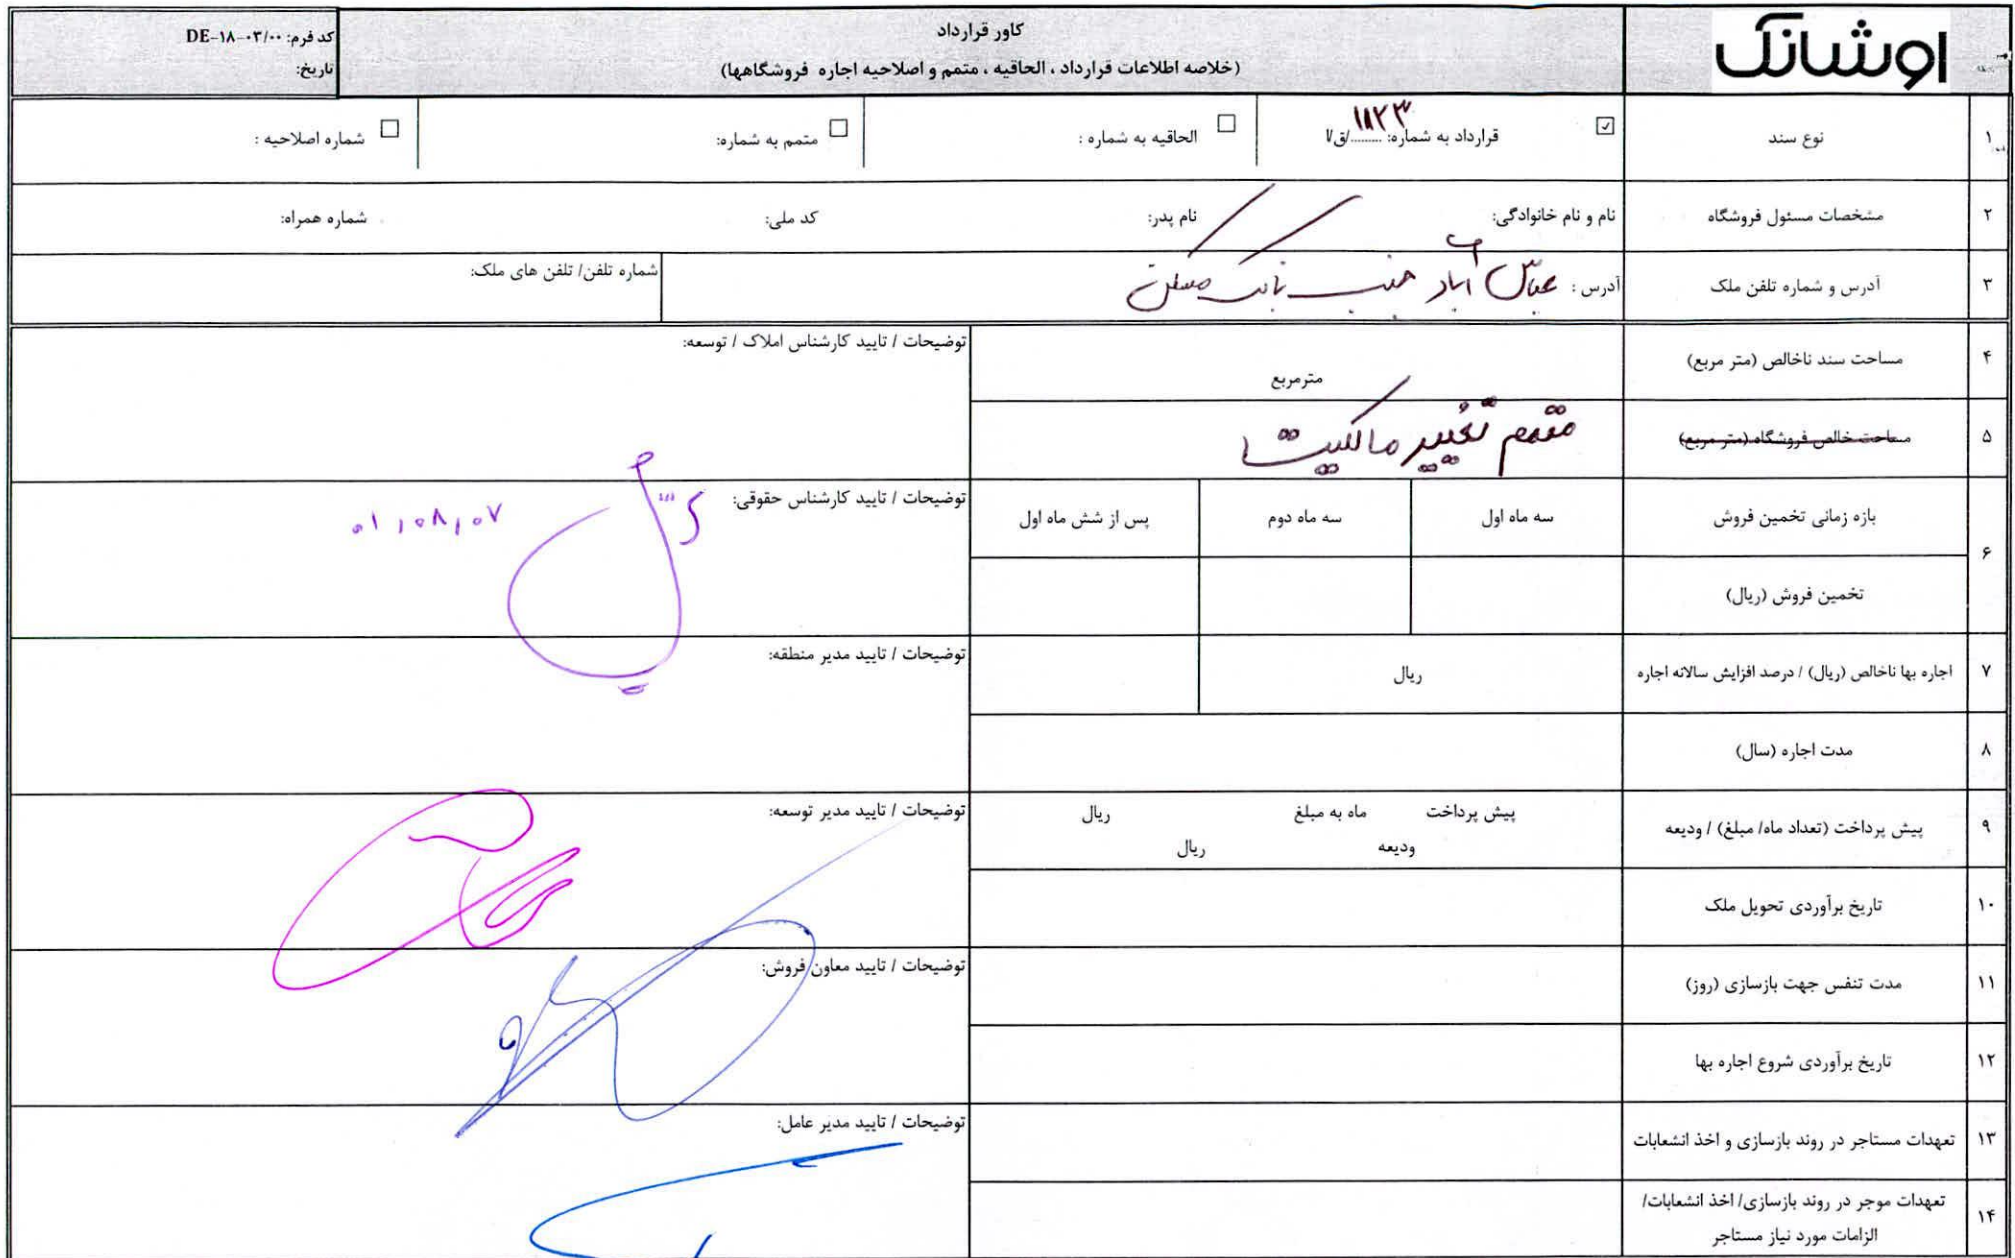 اوشانک
کاور قرارداد
(خلاصه اطلاعات قرارداد ، الحاقیه ، متمم و اصلاحیه اجاره فروشگاهها)
کد فرم: DE-۱۸-۰۳/۰۰
تاریخ:
۱ نوع سند
☑ قرارداد به شماره: ۱۸۲۳/ق/۷
☐ الحاقیه به شماره :
☐ متمم به شماره:
☐ شماره اصلاحیه :
۲ مشخصات مسئول فروشگاه
نام و نام خانوادگی: نام پدر: کد ملی: شماره همراه:
۳ آدرس و شماره تلفن ملک
آدرس : عباس آباد جنب بانک مسکن
شماره تلفن/ تلفن های ملک:
۴ مساحت سند ناخالص (متر مربع)
مترمربع
توضیحات / تایید کارشناس املاک / توسعه:
۵ مساحت خالص فروشگاه (متر مربع)
متمم تغییر مالکیت
۶ بازه زمانی تخمین فروش
سه ماه اول سه ماه دوم پس از شش ماه اول
توضیحات / تایید کارشناس حقوقی:
۰۱,۰۸,۰۷
تخمین فروش (ریال)
۷ اجاره بها ناخالص (ریال) / درصد افزایش سالانه اجاره
ریال
توضیحات / تایید مدیر منطقه:
۸ مدت اجاره (سال)
۹ پیش پرداخت (تعداد ماه/ مبلغ) / ودیعه
پیش پرداخت ماه به مبلغ ریال
ودیعه ریال
توضیحات / تایید مدیر توسعه:
۱۰ تاریخ برآوردی تحویل ملک
۱۱ مدت تنفس جهت بازسازی (روز)
توضیحات / تایید معاون فروش:
۱۲ تاریخ برآوردی شروع اجاره بها
۱۳ تعهدات مستاجر در روند بازسازی و اخذ انشعابات
توضیحات / تایید مدیر عامل:
۱۴ تعهدات موجر در روند بازسازی/ اخذ انشعابات/
الزامات مورد نیاز مستاجر